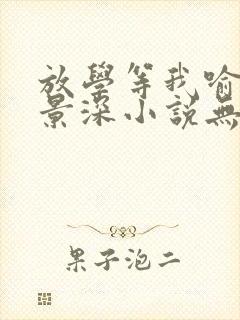 放學等我喻
景深小說無
果子泡二